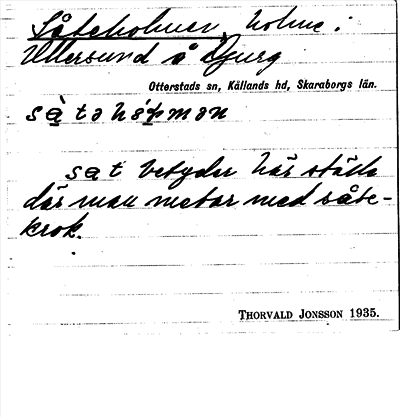 Såteholmen, holme i
Ullersund å Djurg
Otterstads sn, Kållands hd, Skaraborgs län.
såt betyder här ställe
där man metar med såte-
krok.
THORVALD JONSSON 1935.